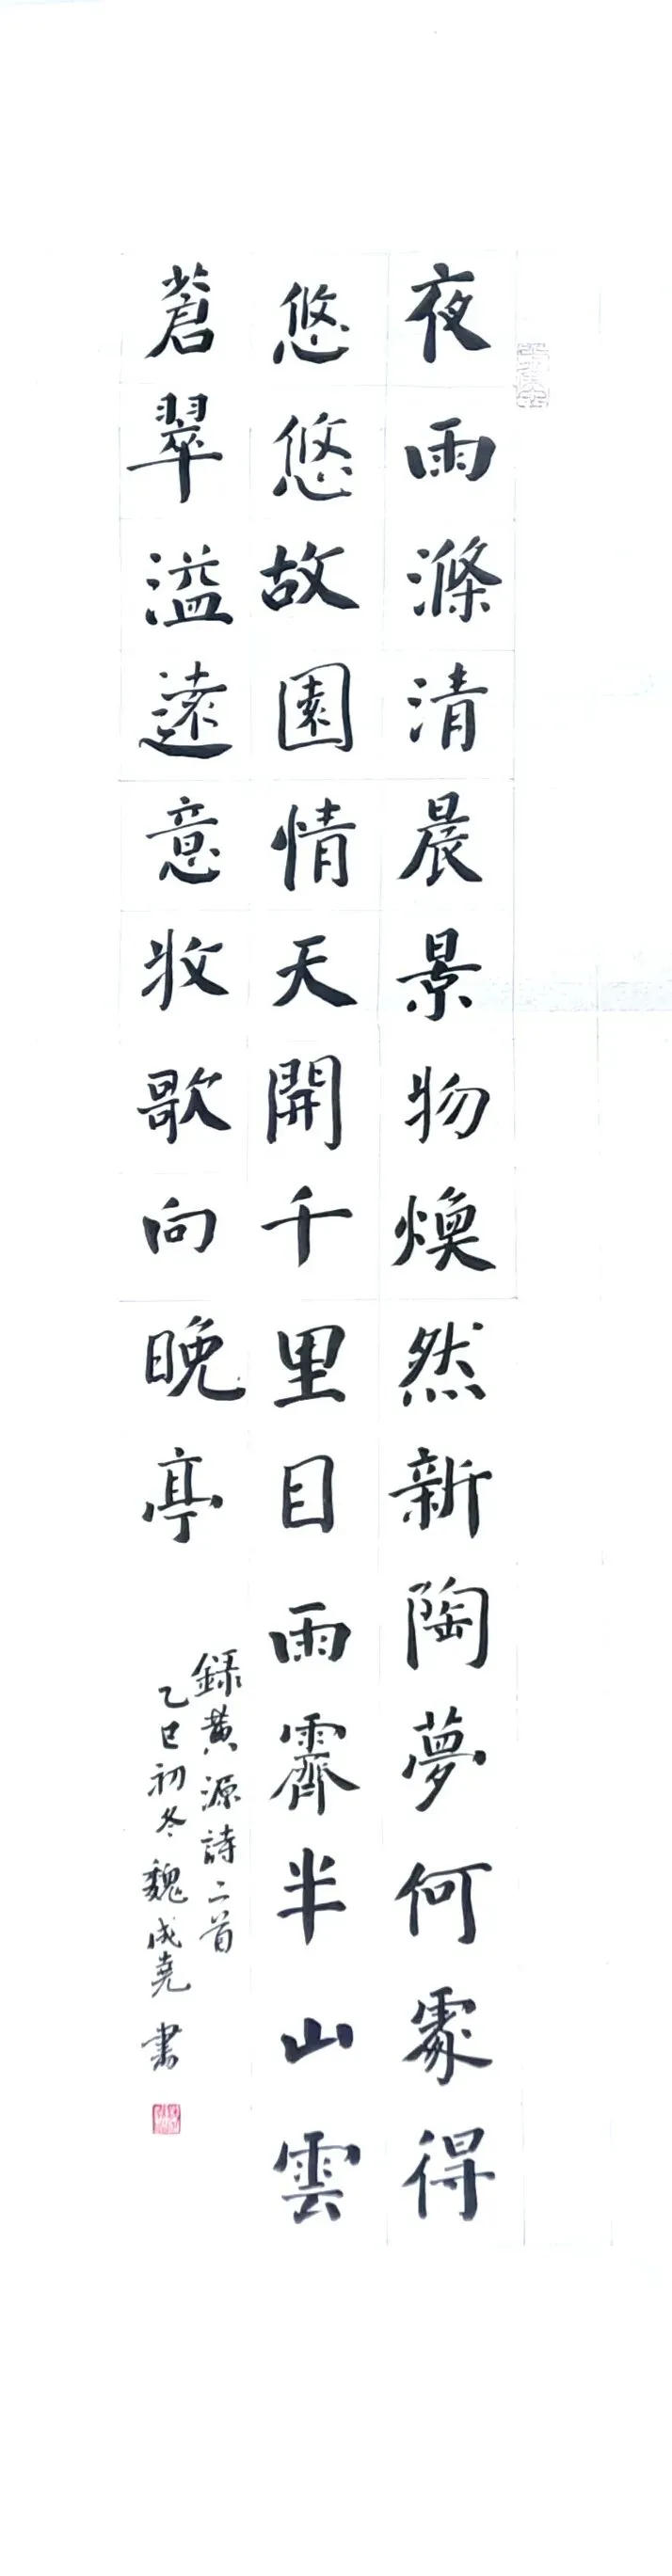 夜雨滌清晨景物煥然新陶夢何處得
悠悠故園情天開千里目雨霽半山雲
蒼翠溢遠意牧歌向晚亭
録黃源詩二首
乙巳初冬魏成堯書